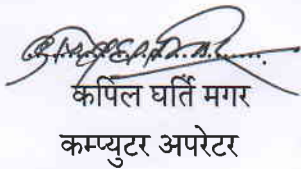 कपिल घर्ति मगर
कम्प्युटर अपरेटर